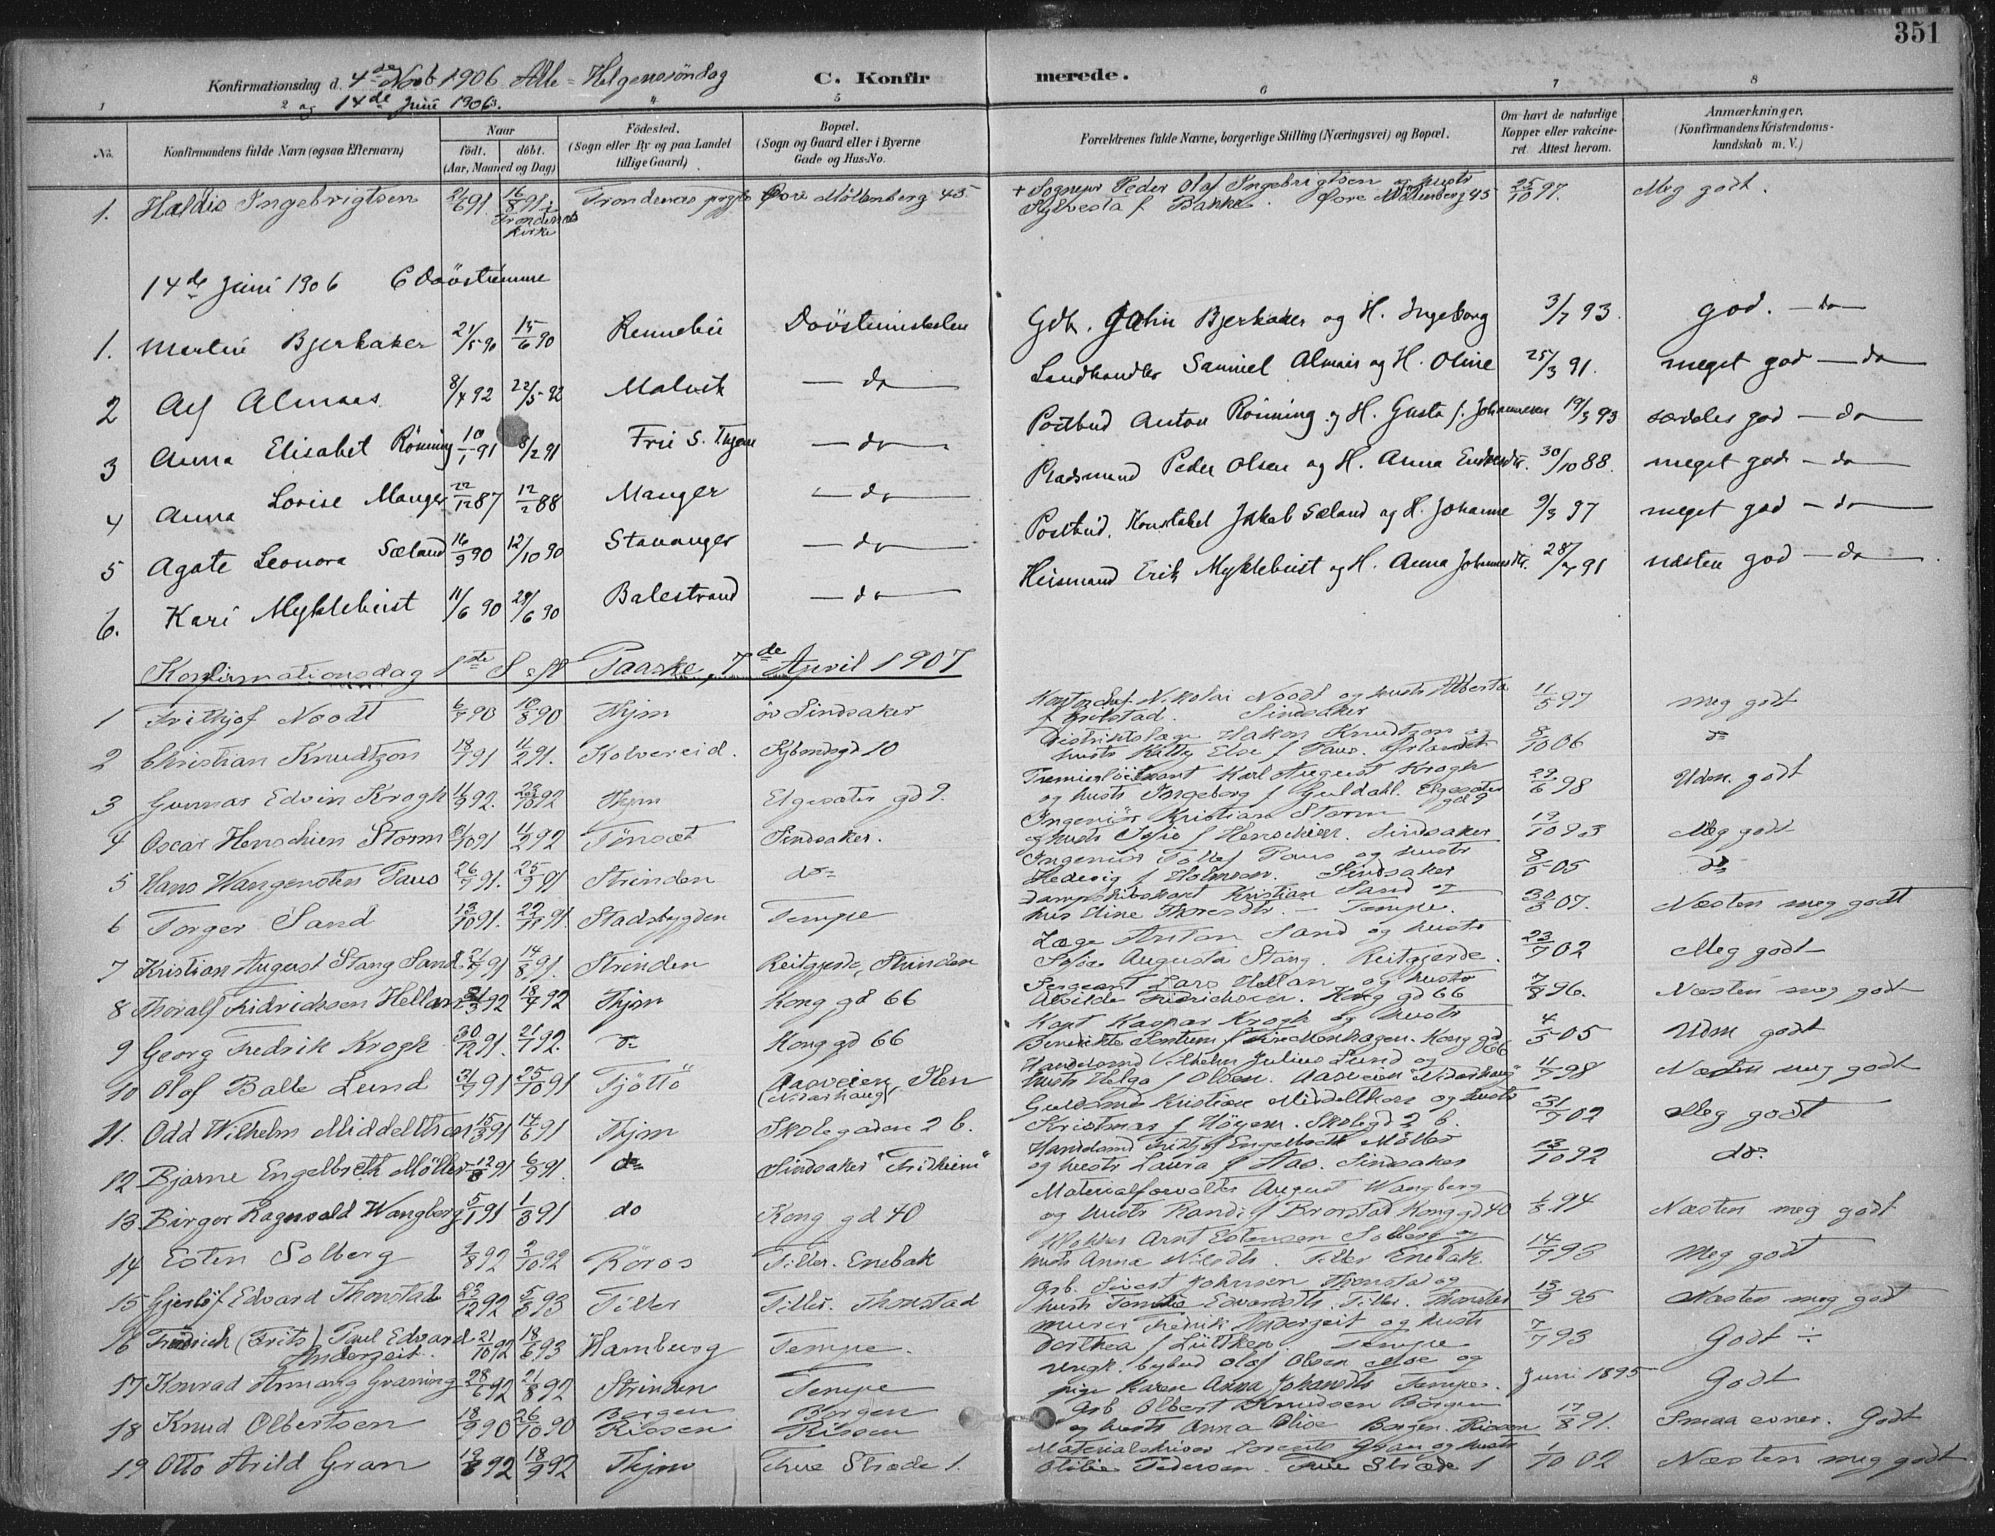 351
Konfirmationsdag d. 4de Novb 1906 Alle-Helgenssöndag C. Konfirmerede.
og 14de Juni 1906.
1 2 4 5 6 7 8
No. Konfirmandens fulde Navn (ogsaa Efternavn) Naar født. døbt. (Aar, Maaned og Dag) Fødested. (Sogn eller By og paa Landet tillige Gaard) Bopæl. (Sogn og Gaard eller i Byerne Gade og Hus-No. Forældrenes fulde Navne, borgerlige Stilling (Næringsvei) og Bopæl. Om havt de naturlige Kopper eller vakcineret. Attest herom. Anmærkninger. (Konfirmandens Kristendomskundskab m. V.)
1. Haldis Ingebrigtsen 21/6 91 16/8 91 i Trondenæs kirke Trondenæs prgj Øvre Möllenberg 45 + Sognepr Peder Olaf Ingebrigtsen og hustr Sylvesta f Bakke. Øvre Möllenberg 45 25/10 97. Meg godt.
14de Juni 1906 6 Døvstumme
1. Martin Bjerkaker 21/5 90 15/6 90 Rennebu Døvstumskolen Gdb. John Bjerkaker og H. Ingeborg 3/7 93. god. – do
2 Alf Almaas 8/4 92 22/5 92 Malvik – do – Landhandler Samuel Almaas og H. Oline 25/3 91. meget god – do
3 Anna Elisabet Rönning 10/1 91 8/2 91 Frue S. Thjem – do – Postbud Anton Rönning og H. Gusta f. Johannesen 19/3 93 særdeles god – do
4 Anna Lovise Manger 22/12 87 12/2 88 Manger – do – Pladsmand Peder Olsen og H. Anna Endresdtr. 30/10 88. meget god – do
5 Agate Leonora Sæland 16/9 90 12/10 90 Stavanger – do – Postbud, Konstabel Jakob Sæland og H. Johanne 9/3 97 meget god – do
6. Kari Myklebust 11/6 90 29/6 90 Balestrand – do – Husmand Erik Myklebust og H. Anna Johannesdtr. 28/7 91 næsten god – do
Konfirmationsdag 1ste S eft Paaske, 7de April 1907
1 Frithjof Noodt 6/7 90 10/8 90 Thjm öv Sindsaker Kontorchef Nikolai Noodt og hustr Alberta f Sindsaker 11/5 97 meg godt
2 Christian Knudtzon 18/1 91 11/2 91. Kolvereid. Kjbmdsgd 10 Distriktslæge Hakon Knudtzon og hustr Kitty Else f Paus. 8/10 06 do
3 Gunnar Edvin Krogh 11/9 92. 23/10 92 Thjm Elgesæter gd 9. Premierlöitnant Karl August Krogh og hustr Ingeborg f Guldahl. Elgesæter gd 9 29/6 98 Udm. godt
4 Oscar Henschien Storm 31/10 91 11/2 92 Tönsæt Sindsaker. Ingeniör Kristian Storm og hustr Sofie f Henschien. Sindsaker 19/10 93 Meg godt
5 Hans Wangensten Paus 26/7 91. 25/9 91 Strinden do Ingeniör Tollef Paus og hustr Hedevig f Holmsen. Sindsaker 8/5 05 do
6 Torger Sand 13/10 91. 22/11 91. Stadsbygden Tempe Dampskibskapt Kristian Sand og hus Eline Thoresdtr. – Tempe. 30/3 07. Næsten meg godt
7 Kristian August Stang Sand 91 14/8 91. Strinden Reitgjerde, Strinden Læge Anton Sand og hustr Sofie Augusta Stang. Reitgjerde. 23/7 02 Meg godt
8 Thoralf Fridrichsen Hellan 31/3 92 18/7 92 Thjm Kong gd 66 Sergeant Lars Hellan og hustr Alvilde Fredrichsen. Kong gd 66 7/8 96. Næsten meg godt
9 Georg Fredrik Krogh 30/12 91. 21/7 92. do Kong gd 66 Kapt Kaspar Krogh og hustr Kong gd 66 4/5 05 Udm godt
10 Olaf Balle Lund 31/7 91 25/10 91 Tjöttö Aasveien, Ilen (Nidarhaug) Handelsmd Vilhelm Julius Lund og hustr Helga f Olsen. Aasveien "Nidarhaug" 11/7 98 Næsten meg godt
11. Odd Wilhelm Middelthon 15/3 91 14/6 91 Thjm Skolegaden 2 b. Guldsmd Kristian Middelthon og hustr Kristmar f Höyem. Skolegd 2 b. 31/7 02 Meg godt
12 Bjarne Engelbreth Möller 12/8 91 6/9 91. do Sindsaker "Fridheim" Handelsmd Fritjof Engelbreth Möller og hustr Laura f Aas. Sindsaker 13/10 92 do.
13 Birger Ragnvald Wangberg 5/1 91 1/3 91 do Kong gd 40 Materialforvalter August Wangberg og hustr Randi f Brovstad Kong gd 40 1/8. 94 Næsten meg godt
14 Esten Solberg 2/8 92 2/10 92 Röros Tiller. Enebak Arnt Estensen Solberg og hustr Anna Nilsdtr. Tiller Enebak 14/7 93 Meg godt
15 Gjerlöf Edvard Thonstad 23/12 92 5/3 93 Tiller Tiller. Thonstad Grb. Sivert Johnsen Thonstad og hustr Edvardsdtr. Tiller. Thonstad 13/9 95 Næsten meg godt
16 Friedrich (Frits) Paul Edvard Anderzeit. 21/10 92 18/6 93 Hamburg Tempe. murer Fredrik Anderzeit og hustr Dorthea f Lüttken Tempe 7/7 93 Godt ÷
17 Konrad Arnang Græning 28/6 92 21/8 92 Strinden Tempe ungk. bybud Olof Olsen Moe og pige Karen Anna Johansdtr Tempe. Juni 1895 Godt
18 Knud Olbertsen 18/9 90 26/10 90 Borgen Rissen Borgen Rissen Grb Olbert Knudsen Borgen og hustr Anna Olise Borgen. Rissen 17/8 91. Smaa evner. Godt
19 Otto Arild Gran 19/6 92 18/9 92 Thjm Frue Stræde 1. Materialskriver Lorents Gran og hustr Otilie Pedersen. Frue Stræde 1 1/10 02 Næsten meg godt